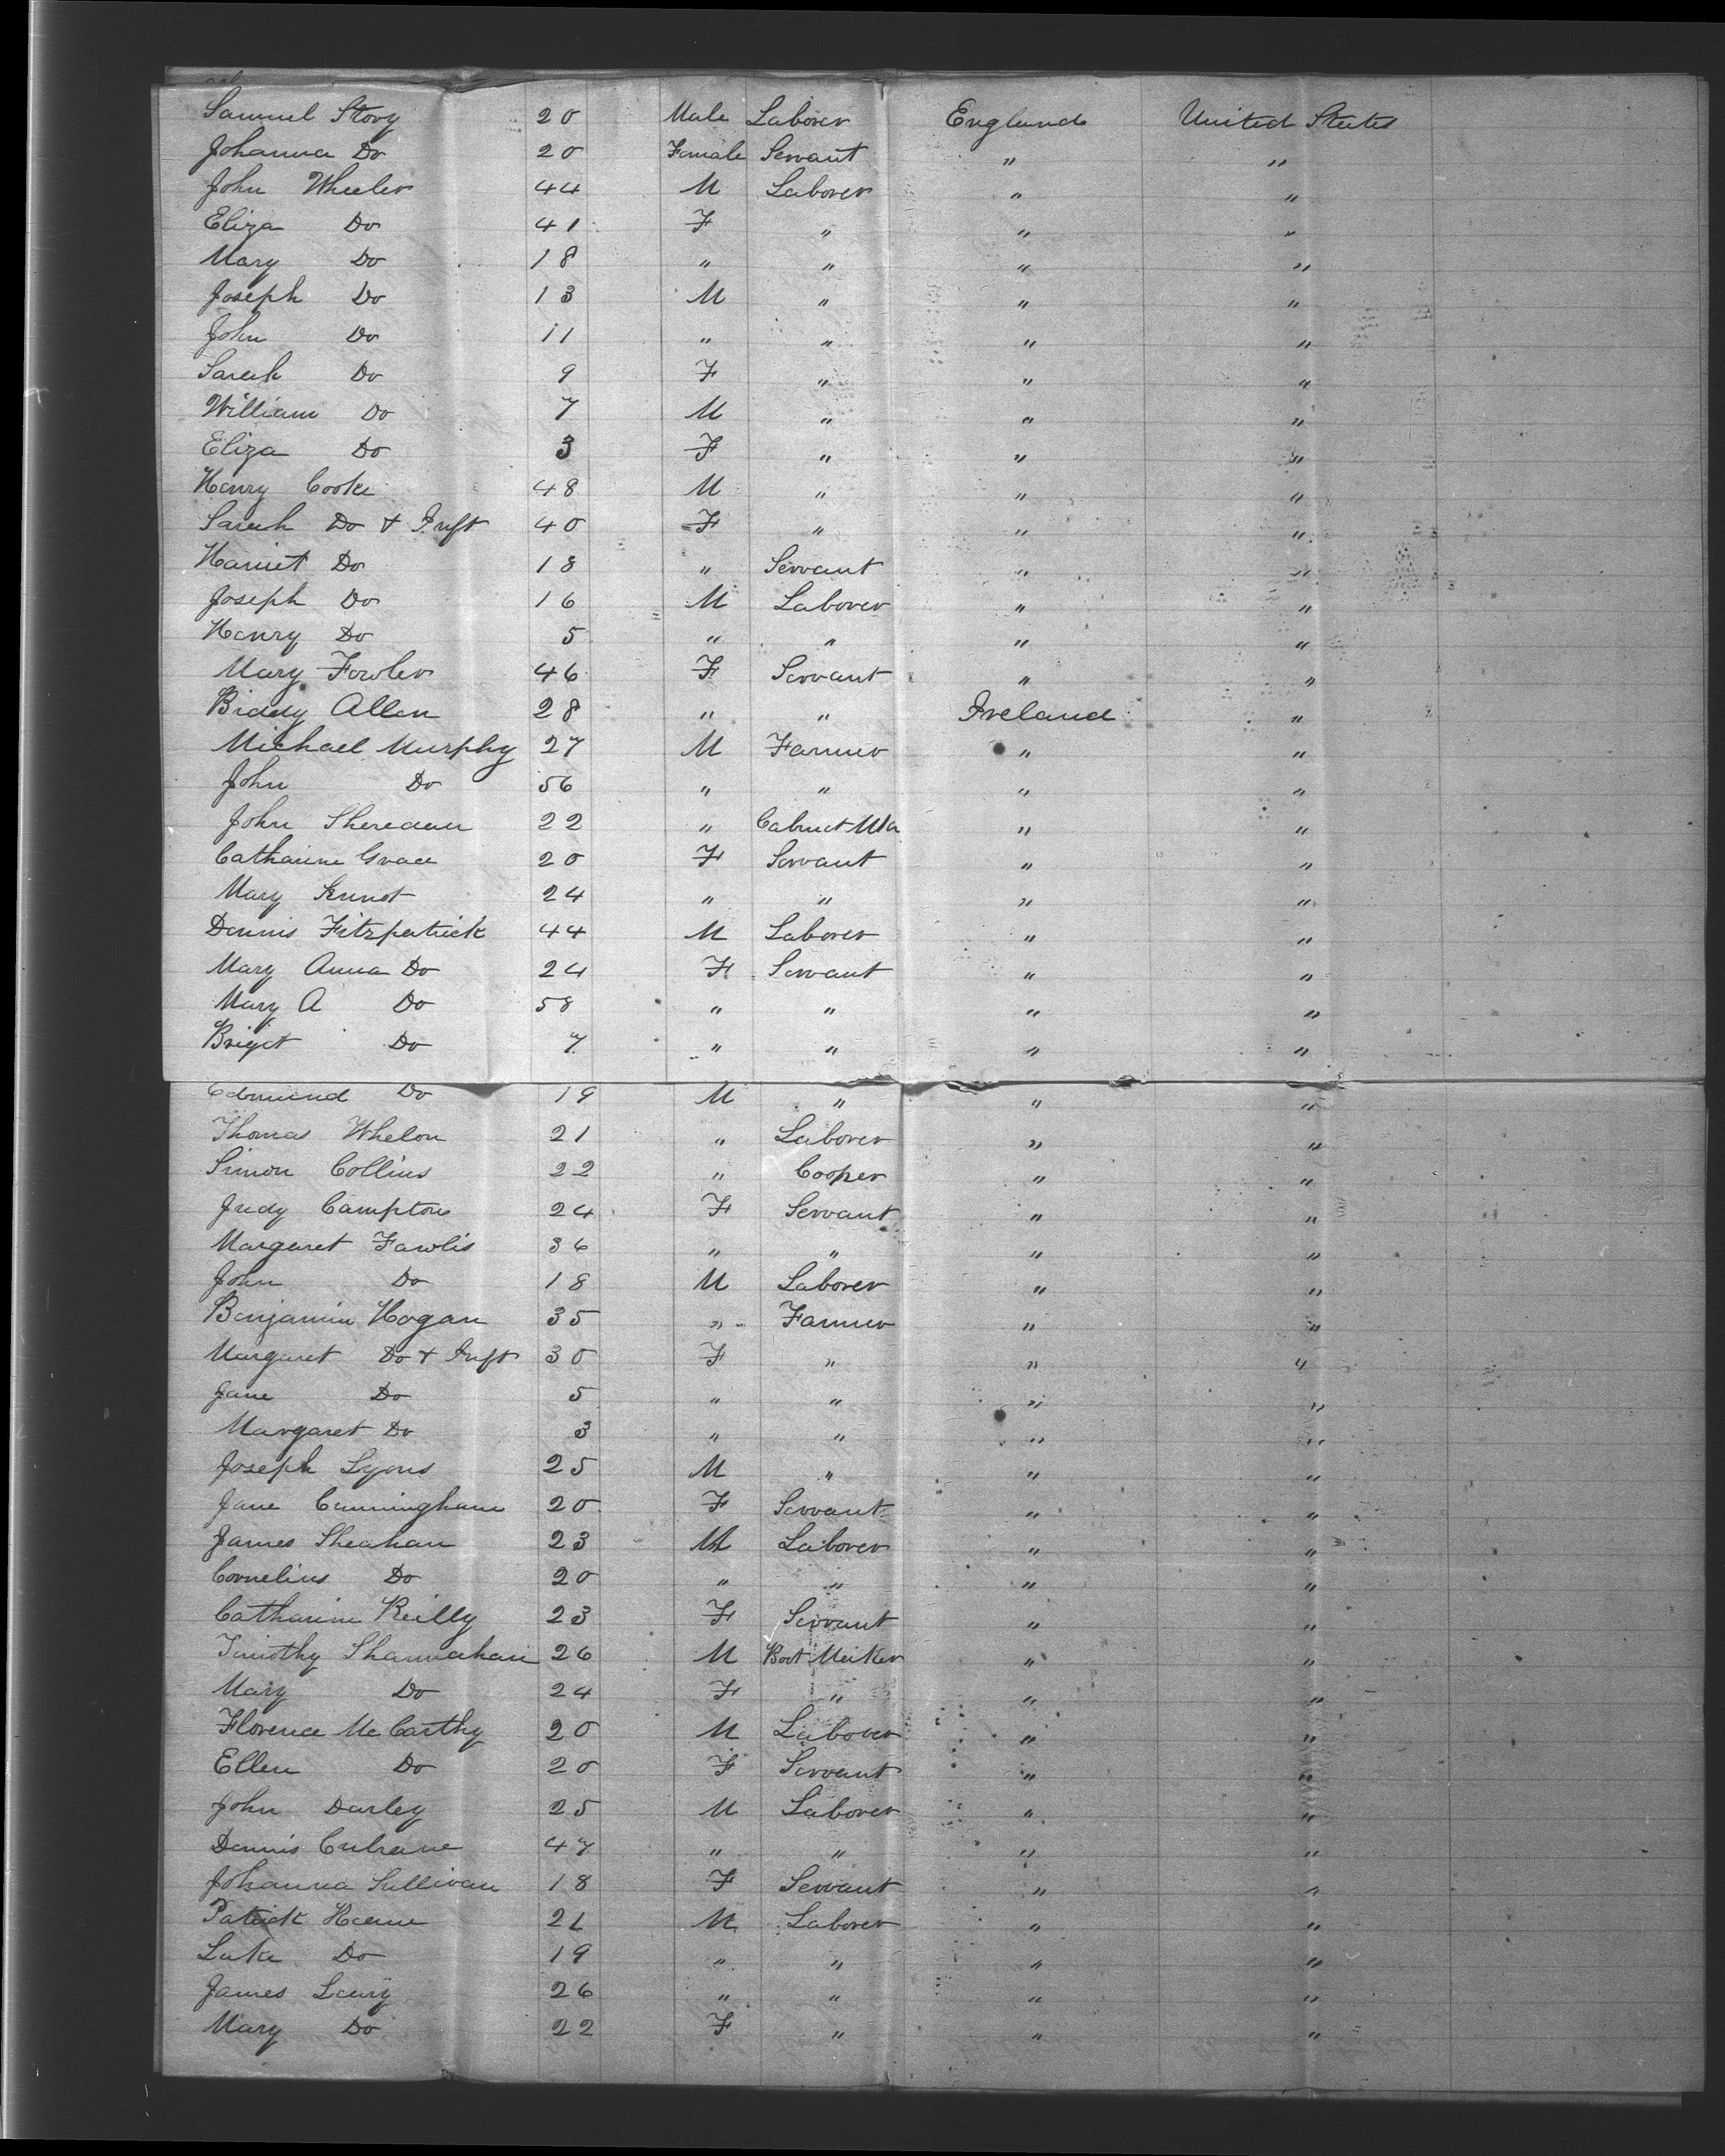 Samuel Story 20 Male Laborer England United States
Johanna Do 20 Female Servant " "
John Wheeler 44 M Laborer " "
Eliza Do 41 F " " "
Mary Do 18 " " " "
Joseph Do 13 M " " "
John Do 11 " " " "
Sarah Do 9 F " " "
William Do 7 M " " "
Eliza Do 3 F " " "
Henry Cooke 48 M " " "
Sarah Do & Inft 40 F " " "
Harriet Do 18 " Servant " "
Joseph Do 16 M Laborer " "
Henry Do 5 " " " "
Mary Fowler 46 F Servant " "
Biddy Allen 28 " " Ireland "
Michael Murphy 27 M Farmer " "
John Do 56 " " " "
John Sheredan 22 " Cabinet Mkr " "
Catharine Grace 20 F Servant " "
Mary Sennot 24 " " " "
Dennis Fitzpatrick 44 M Laborer " "
Mary Anna Do 24 F Servant " "
Mary A Do 58 " " " "
Briget Do 7 " " " "
Edmund Do 19 M " " "
Thomas Whelon 21 " Laborer " "
Simon Collins 22 " Cooper " "
Judy Campton 24 F Servant " "
Margaret Fawlis 36 " " " "
John Do 18 M Laborer " "
Benjamin Hogan 35 " Farmer " "
Margaret Do & Inft 30 F " " "
Jane Do 5 " " " "
Margaret Do 3 " " " "
Joseph Lyons 25 M " " "
Jane Cunningham 20 F Servant " "
James Sheahan 23 M Laborer " "
Cornelius Do 20 " " " "
Catharine Reilly 23 F Servant " "
Timothy Shannahan 26 M Boot Maker " "
Mary Do 24 F " " "
Florence McCarthy 20 M Laborer " "
Ellen Do 20 F Servant " "
John Darley 25 M Laborer " "
Dennis 47 " " " "
Johanna Sullivan 18 F Servant " "
Patrick 21 M Laborer " "
Luke Do 19 " " " "
James 26 " " " "
Mary Do 22 F " " "